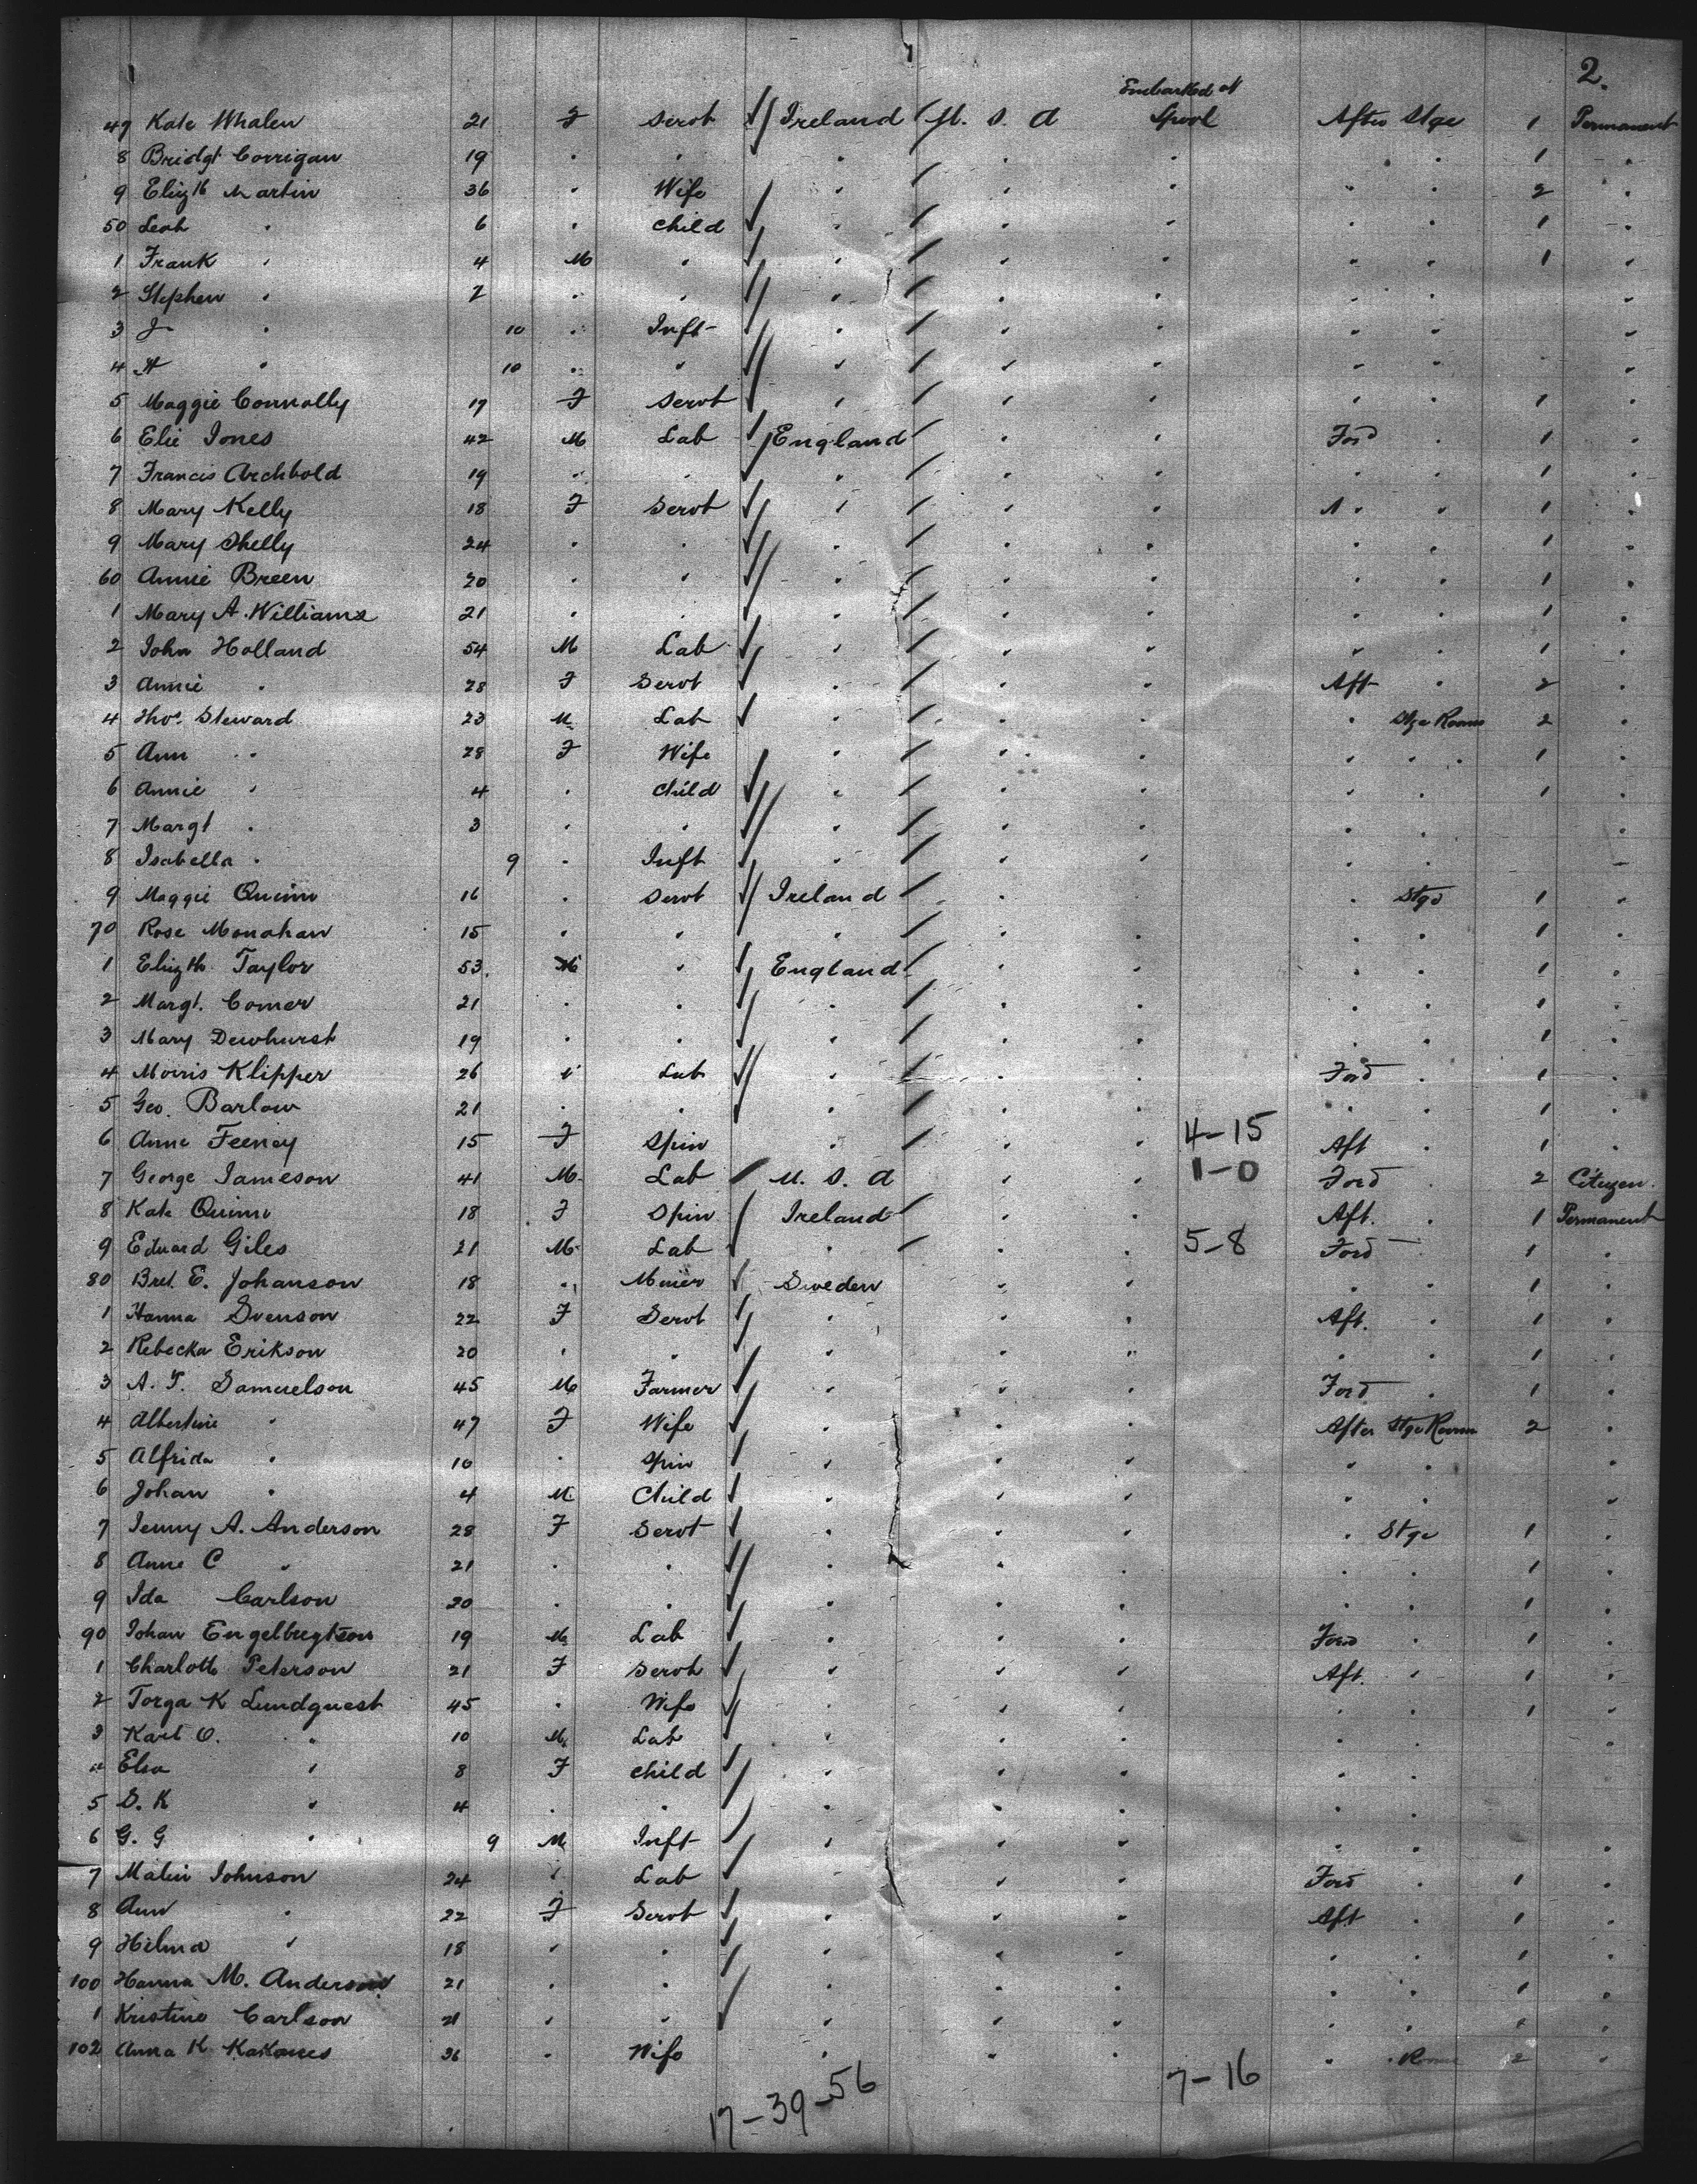 2.
Embarked at
47 Kate Whalen 21 F Servt Ireland U. S. A Lpool After Stge 1 Permanent
8 Bridgt Corrigan 19 " " " " " " " 1 "
9 Elizth Martin 36 " Wife " " " " " 2 "
50 Leah " 6 " Child " " " " " 1 "
1 Frank " 4 M " " " " " " 1 "
2 Stephen " 2 " " " " " " " "
3 J " 10 " Inft " " " " " "
4 A " 10 " " " " " " " "
5 Maggie Connolly 17 F Servt " " " " " 1 "
6 Elie Jones 42 M Lab England " " Ford " 1 "
7 Francis Archbold 19 " " " " " " " 1 "
8 Mary Kelly 18 F Servt " " " A " " 1 "
9 Mary Shelly 24 " " " " " " " 1 "
60 Annie Breen 20 " " " " " " " 1 "
1 Mary A. Williams 21 " " " " " " " 1 "
2 John Holland 54 M Lab " " " " " 1 "
3 Annie " 28 F Servt " " " Aft " 2 "
4 Thos. Steward 23 M Lab " " " " Stge Room 2 "
5 Ann " 28 F Wife " " " " " 1 "
6 Annie " 4 " Child " " " " " 1 "
7 Margt " 3 " " " " " " " "
8 Isabella " 9 " Inft " " " " " "
9 Maggie Quinn 16 " Servt Ireland " " " Stge 1 "
70 Rose Monahan 15 " " " " " " " 1 "
1 Elizth Taylor 53 M " England " " " " 1 "
2 Margt. Comer 21 " " " " " " " 1 "
3 Mary Dewhurst 19 " " " " " " " 1 "
4 Morris Klipper 26 " Lab " " " Ford " 1 "
5 Geo. Barlow 21 " " " " " " " 1 "
6 Anne Feeney 15 F Spin " " " 4-15 Aft " 1 "
7 George Jameson 41 M Lab U. S. A " " 1-0 Ford " 2 Citizen
8 Kate Quinn 18 F Spin Ireland " " Aft. " 1 Permanent
9 Edward Giles 21 M Lab " " " 5-8 Ford " 1 "
80 E. Johanson 18 " Miner Sweden " " " " 1 "
1 Hanna Svenson 22 F Servt " " " Aft. " 1 "
2 Rebecka Erikson 20 " " " " " " " 1 "
3 A. T. Samuelson 45 M Farmer " " " Ford " 1 "
4 Albertine " 47 F Wife " " " After Stge Room 2 "
5 Alfrida " 10 " Spin " " " " " "
6 Johan " 4 M Child " " " " " "
7 Jenny A. Anderson 28 F Servt " " " " Stge 1 "
8 Anne C " 21 " " " " " " " 1 "
9 Ida Carlson 20 " " " " " " " 1 "
90 Johan Engelbregtson 19 M Lab " " " Ford " 1 "
1 Charlotte Peterson 21 F Servt " " " Aft. " 1 "
2 Torga K Lundquest 45 " Wife " " " " " 1 "
3 Karl O. " 10 M Lab " " " " " "
4 Elsa " 8 F Child " " " " " "
5 S. K " 4 " " " " " " "
6 G. G " 9 M Inft " " " " " "
7 Malin Johnson 24 " Lab " " " Ford " 1 "
8 Ann " 22 F Servt " " " Aft " 1 "
9 Hilma " 18 " " " " " " " 1 "
100 Hanna M. Anderson 21 " " " " " " " 1 "
1 Kristine Carlson 21 " " " " " " " 1 "
102 Anna K 36 " Wife " " " " Room 2 "
7-16
17-39-56